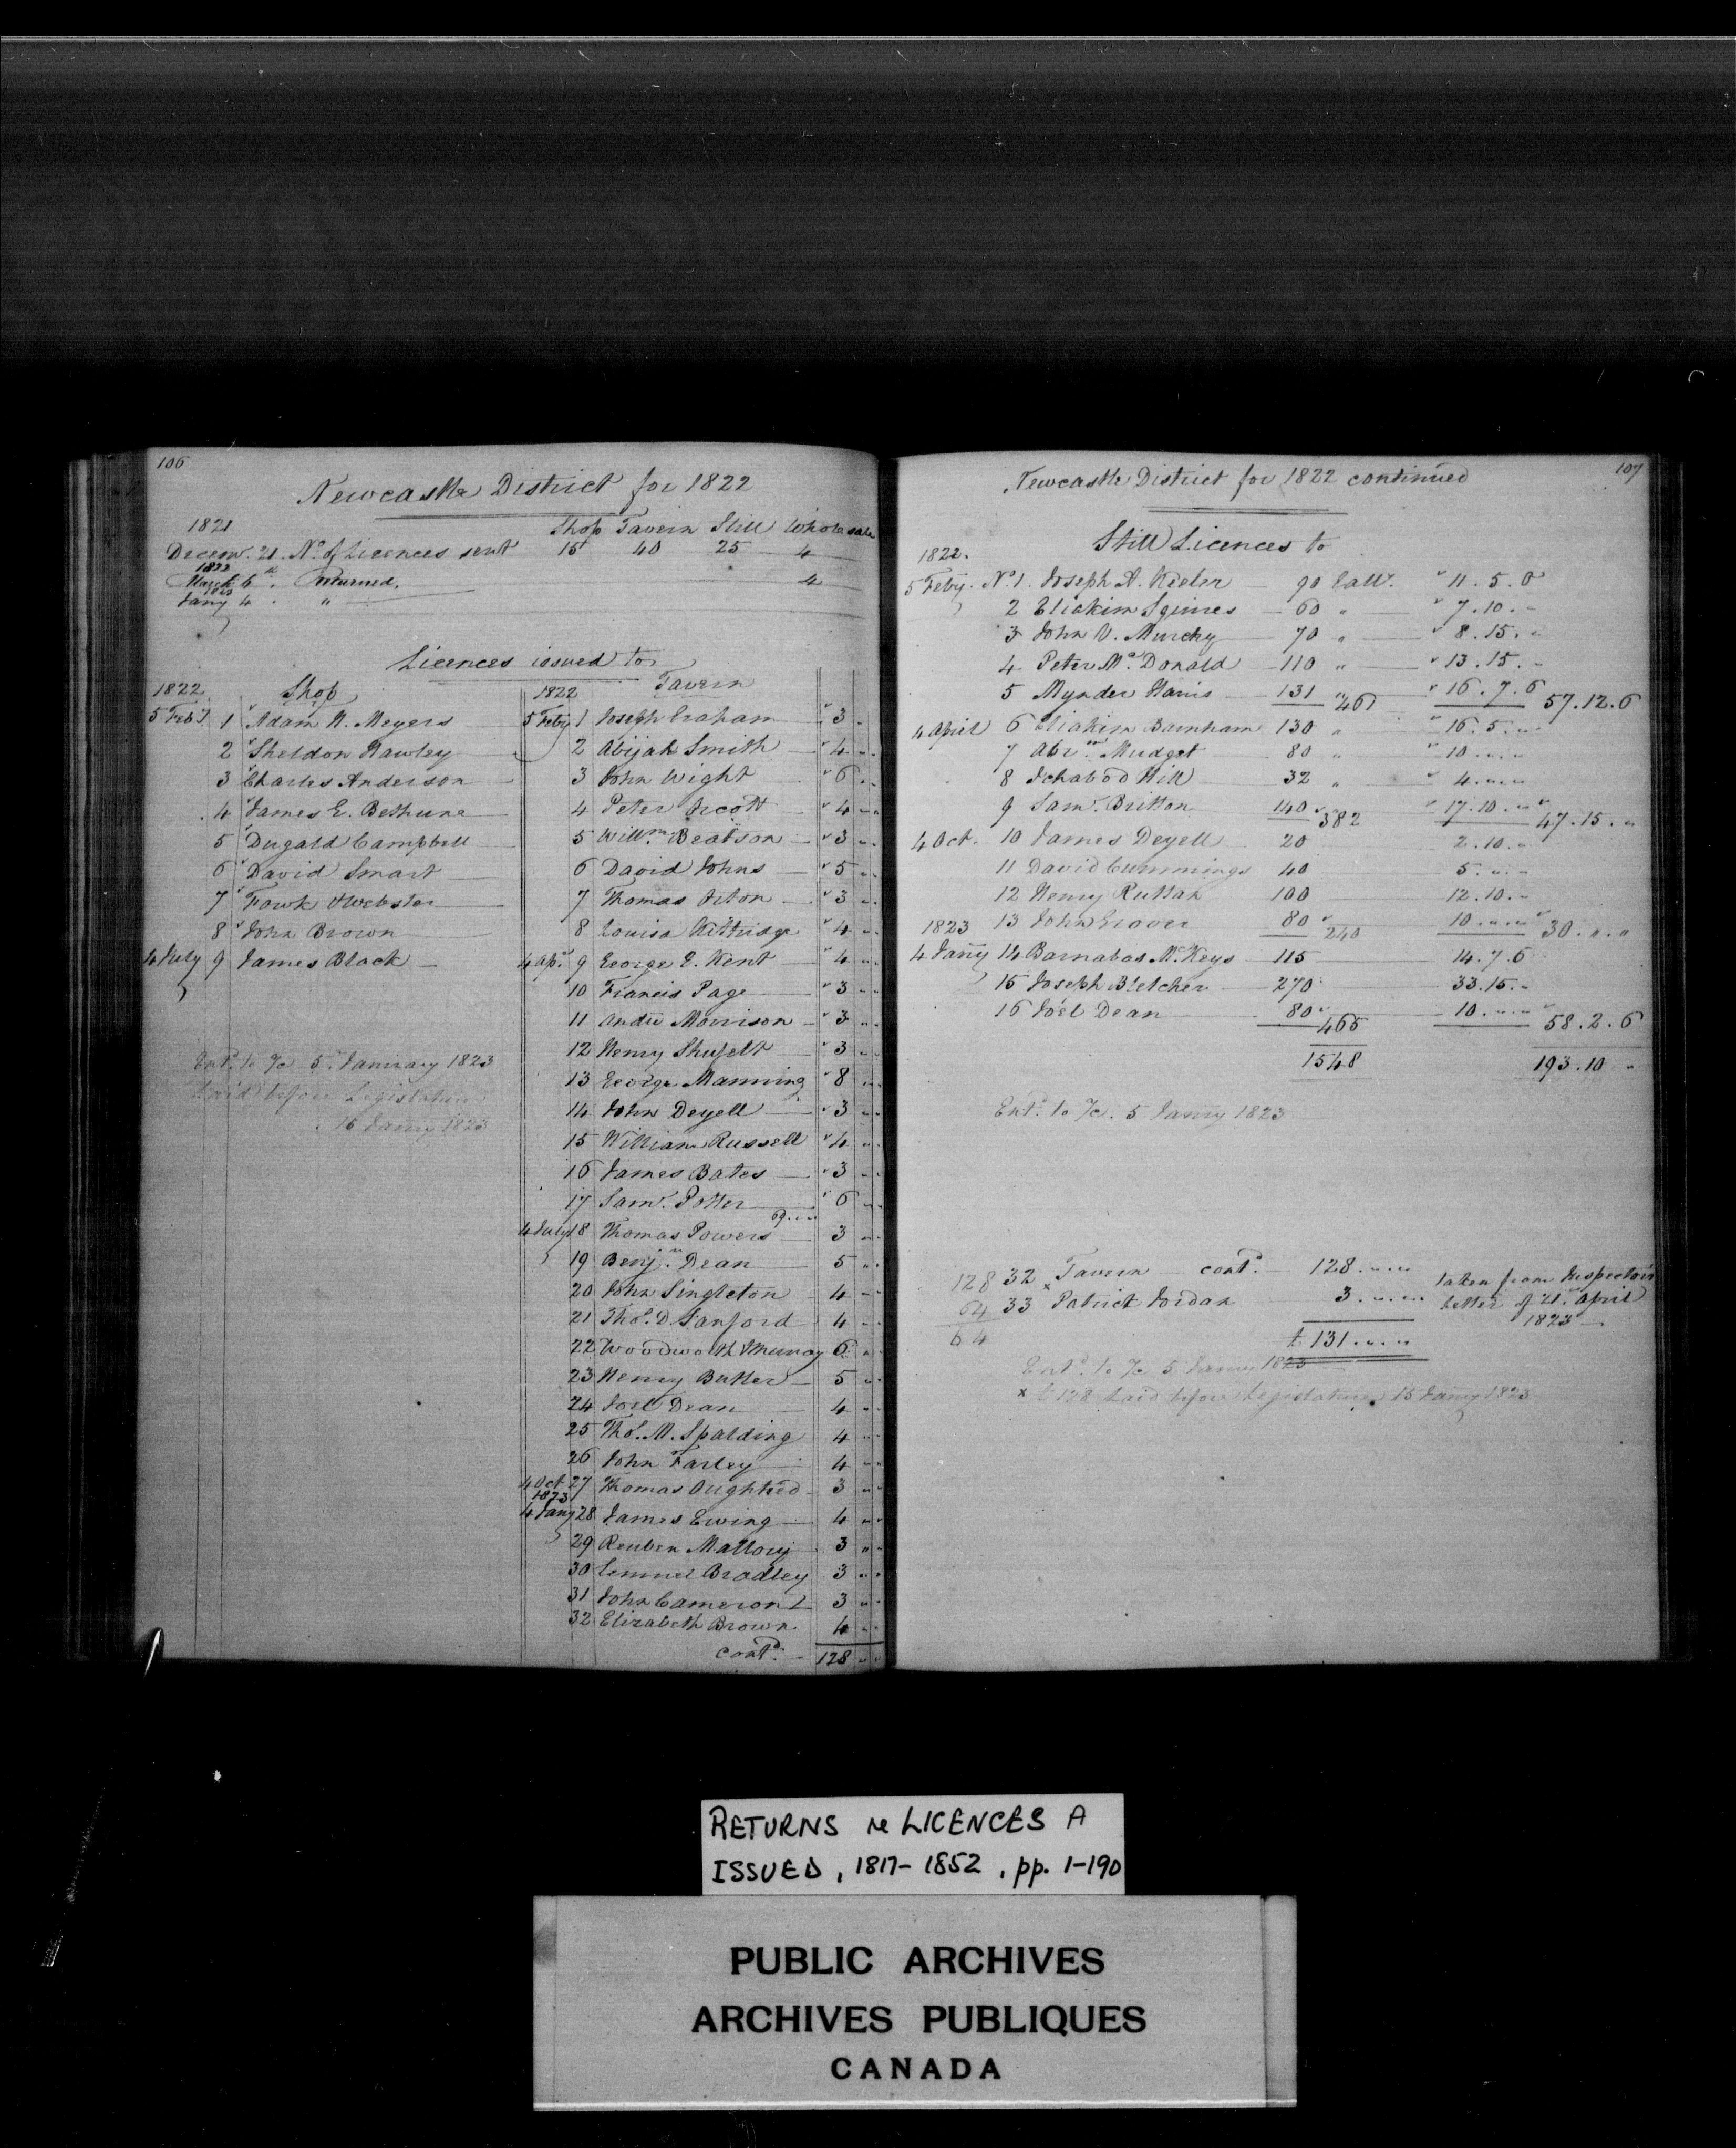 106
Newcastle District for 1822
1821 Shop Tavern Still Wholesale
Decem. 21. No. of Licences sent 15 40 25 4
1822
March 6th. Returned. 4
1823
Jany 4. "
Licences issued to
1822 Shop
5 Feby 1 Adam H. Meyers
2 Sheldon Hawley
3 Charles Anderson
4 James G. Bethune
5 Dugald Campbell
6 David Smart
7 Fowk & Webster
8 John Brown
4 July 9 James Black
Entd. to a/c 5 January 1823
Laid before Legislature
15 Jany 1823
1822 Tavern
5 Feby 1 Joseph Graham 3 " "
2 Abijah Smith 4 " "
3 John Wight 6 " "
4 Peter 4 " "
5 Willm. Beatson 3 " "
6 David Johns 5 " "
7 Thomas Orton 3 " "
8 Louisa Kittridge 4 " "
4 Apl. 9 George G. Kent 4 " "
10 Francis Page 3 " "
11 Andw Morrison 3 " "
12 Henry Shufelt 3 " "
13 George Manning 8 " "
14 John Deyell 3 " "
15 William Russell 4 " "
16 James Bates 3 " "
17 Saml. Potter 6 " "
69 " "
4 July 18 Thomas Powers 3 " "
19 Benjn. Dean 5 " "
20 John Singleton 4 " "
21 Thos. D Sanford 4 " "
22 Woodworth & Murray 6 " "
23 Henry Butler 5 " "
24 Joel Dean 4 " "
25 Thos. M. Spalding 4 " "
26 John Farley 4 " "
4 Oct 27 Thomas Oughtred 3 " "
1823
4 Jany 28 James Ewing 4 " "
29 Reuben Mallory 3 " "
30 Lemuel Bradley 3 " "
31 John Cameron 3 " "
32 Elizabeth Brown 4 " "
contd. 128 " "
107
Newcastle District for 1822 continued
Still Licences to
1822.
5 Feby. No 1. Joseph A. Keeler 90 Gall. 11. 5. 0
2 Eliakim Squires 60 " 7. 10. "
3 John V. Murchy 70 " 8. 15. "
4 Peter McDonald 110 " 13. 15. "
5 Mynder Harris 131 " 461 16. 7. 6 57. 12. 6
4 April 6 Eliakim Barnham 130 " 16. 5. "
7 Abrm. Mudget 80 " 10. " . "
8 Ichabod Hill 32 " 4. " . "
9 Saml. Britton 140 382 17. 10. " 47. 15. "
4 Oct. 10 James Deyell 20 2. 10. "
11 David Cummings 40 5. " . "
12 Henry Ruttan 100 12. 10. "
1823 13 John Grover 80 240 10. " . " 30. " . "
4 Jany 14 Barnabas McKeys 115 14. 7. 6
15 Joseph Bletcher 270 33. 15. "
16 Joel Dean 80 465 10. " . " 58. 2. 6
1548 193. 10 "
Entd. to a/c. 5 Jany 1823
128 32 Tavern contd. 128. " . "
64 33 x Patrick Jordan 3. " . "
64 £ 131. " . "
taken from Inspector's
letter of 21st. April
1823
Entd. to a/c 5 Jany 1823
x £128 Laid before Legislature 15 Jany 1823
RETURNS re LICENCES A
ISSUED, 1817-1852, pp. 1-190
PUBLIC ARCHIVES
ARCHIVES PUBLIQUES
CANADA